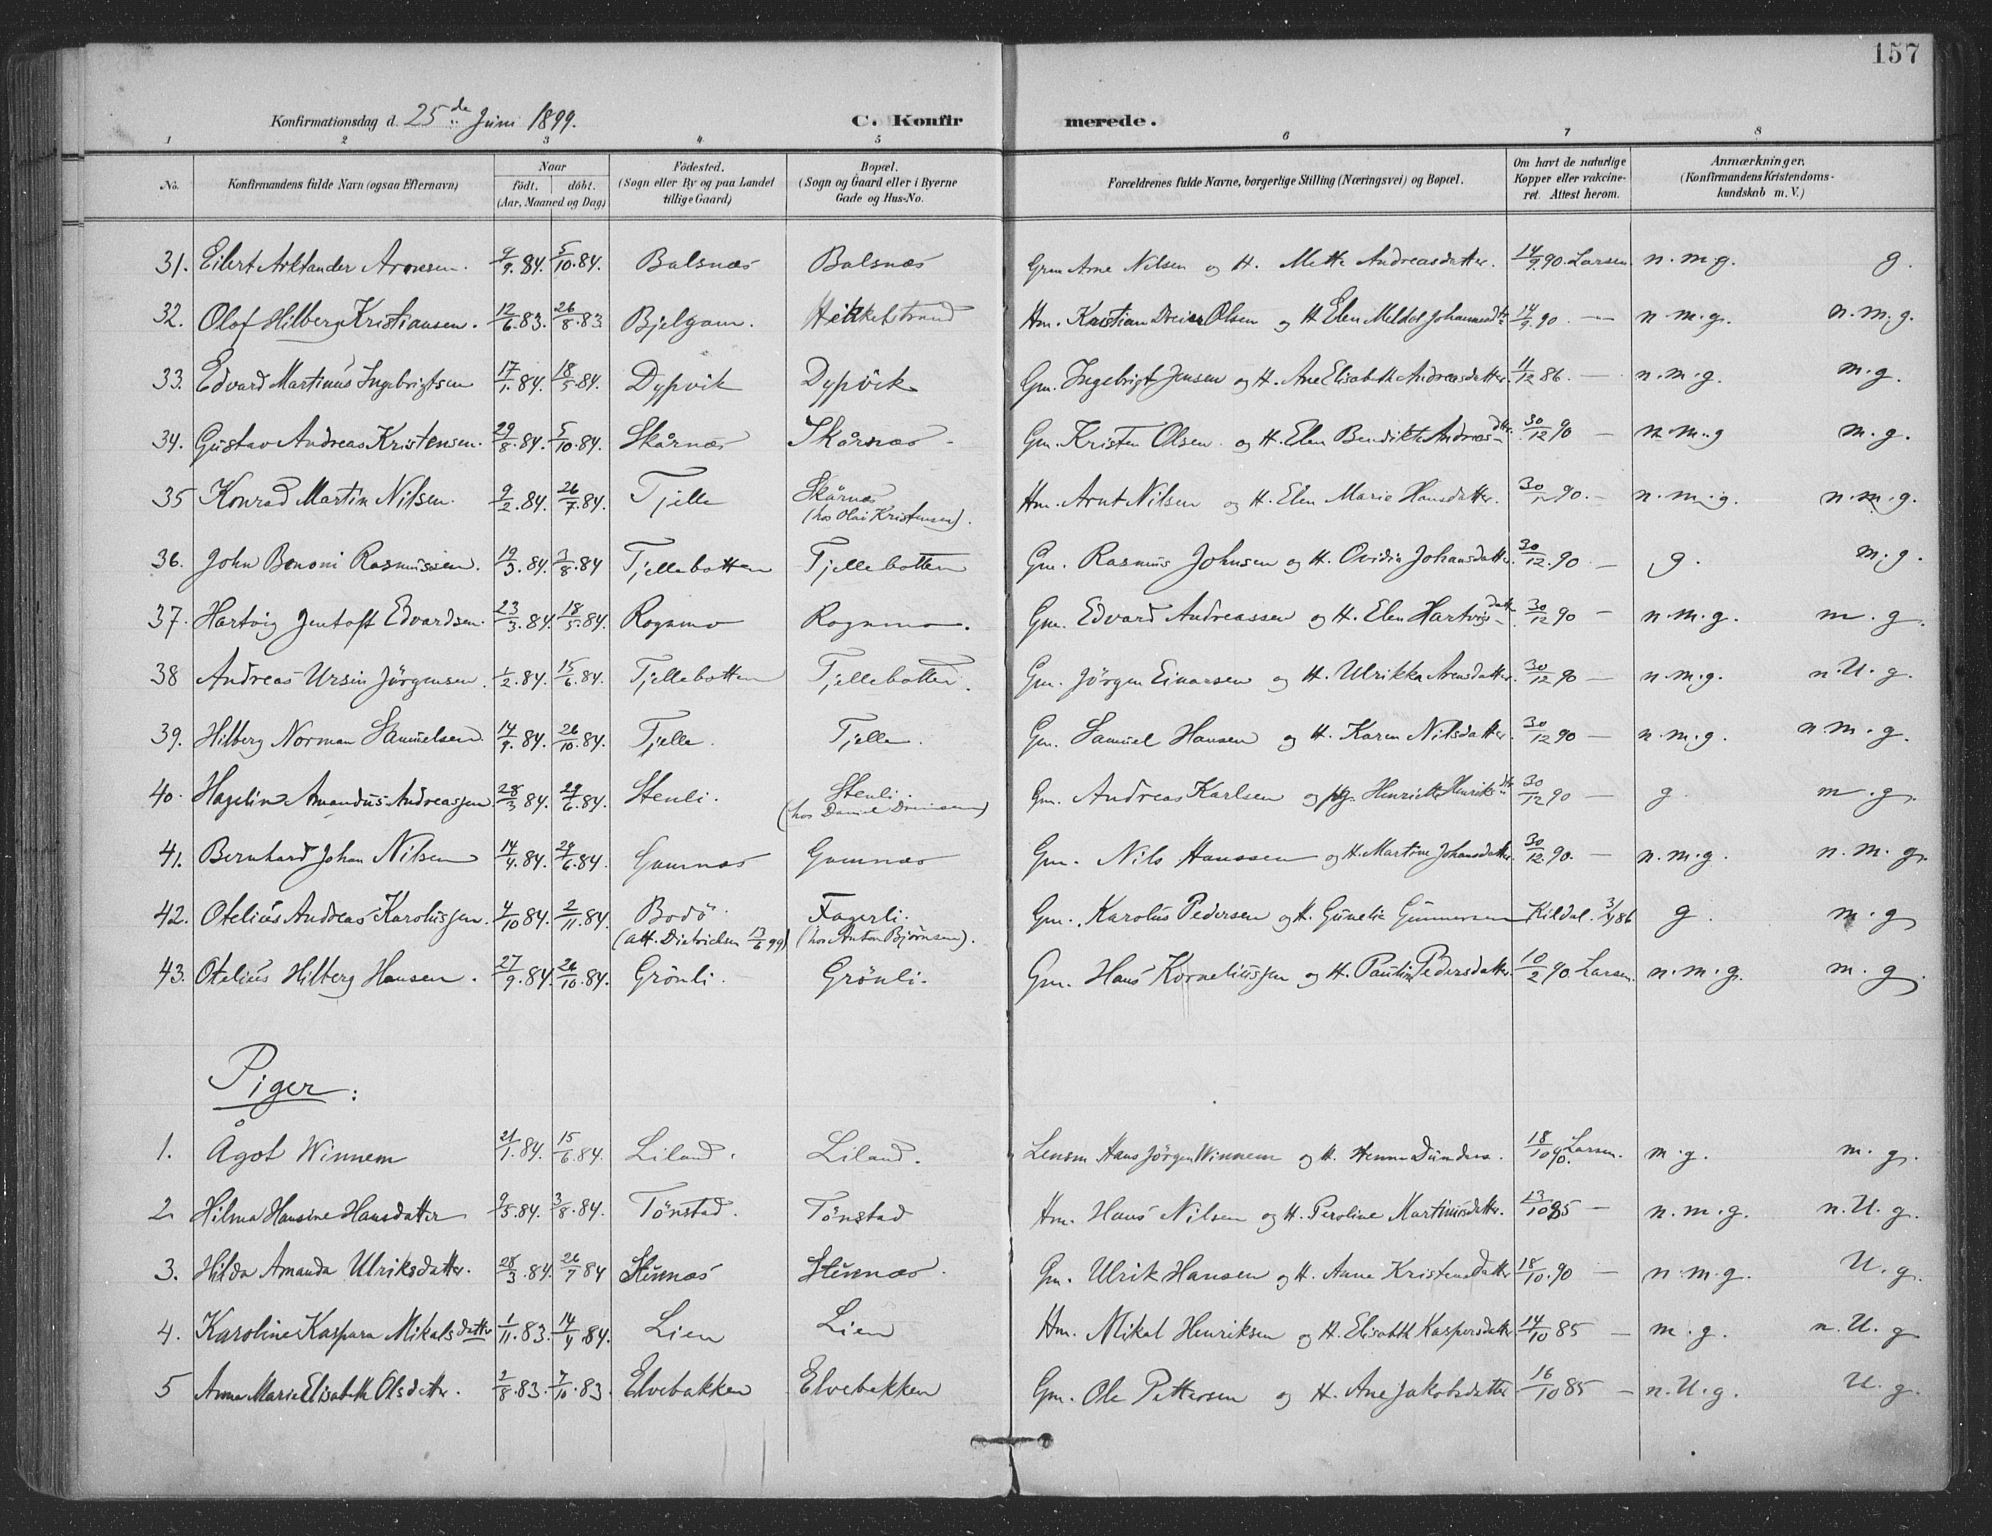 157
Konfirmationsdag d. 25de Juni 1899. C. Konfirmerede.
1 2 3 4 5 6 7 8
No. Konfirmandens fulde Navn (ogsaa Efternavn) Naar födt. döbt. (Aar, Maaned og Dag) Födested. (Sogn eller By og paa Landet tillige Gaard) Bopæl. (Sogn og Gaard eller i Byerne Gade og Hus-No. Forældrenes fulde Navne, borgerlige Stilling (Næringsvei) og Bopæl. Om havt de naturlige Kopper eller vakcineret. Attest herom. Anmærkninger. (Konfirmandens Kristendomskundskab m. V.)
31. Eilert Arktander Aronsen. 9/9.84. 5/10.84. Balsnæs Balsnæs Gm Arne Nilsen og H. Mette Andreasdatter. 14/9.90. Larsen n.m.g. g.
32. Olaf Hilberg Kristiansen. 12/6.83. 26/8.83 Bjelgam. Hekkelstrand Hm. Kristian Dreier Olsen og H. Elen Meldol Johannesdtr 14/9.90. — n.m.g. n.m.g.
33. Edvard Martinus Ingebrigtsen 17/1.84. 18/5.84. Dypvik Dypvik Gm. Ingebrigt Jensen og H. Ane Elisabeth Andreasdatter. 4/12 86. — n.m.g. m.g.
34. Gustav Andreas Kristensen. 29/8.84. 5/10.84. Skårnæs Skårnæs. Gm. Kristen Olsen. og H. Elen Bendikte Andreasdtr. 30/12 90 — n.m.g m.g.
35 Konrad Martin Nilsen. 9/2.84. 26/7.84. Tjelle Skårnæs (hos Olai Kristensen). Hm. Arnt Nilsen og H. Elen Marie Hansdatter. 30/12 90. — n.m.g. n.m.g.
36. John Benoni Rasmussen. 19/3.84. 3/8.84 Tjellebotten Tjellebotten Gm. Rasmus Johnsen og H. Ovidia Johansdatter. 30/12.90. — g. m.g.
37. Hartvig Jentoft Edvardsen. 23/3.84. 18/5.84. Rognmo Rognmo. Gm. Edvard Andreassen og H. Elen Hartvigsdatt. 30/12 90 — n.m.g. m.g.
38 Andreas Ursin Jörgensen. 1/2.84. 15/6.84. Tjellebotten Tjellebotten. Gm. Jörgen Einarsen og H. Ulrikka Arensdatter. 30/12 90 — n.m.g. n.U.g.
39. Hilberg Norman Samuelsen. 14/9.84. 26/10.84. Tjelle. Tjelle. Gm. Samuel Hansen og H. Karen Nilsdatter. 30/12 90 — n.m.g. n.m.g.
40. Hagelin Amandus Andreassen. 28/3 84. 29/6.84. Stenli. Stenli. (hos Daniel) Gm. Andreas Karlsen og pg. Henriette Henriksdtr 30/12 90 — g. m.g.
41. Bernhard Johan Nilsen 14/4.84. 29/6.84. Gamnæs Gamnæs Gm. Nils Hanssen og H. Martine Johansdatter. 30/12.90. — n.m.g. n.m.g.
42. Otelius Andreas Karolussen. 4/10 84. 2/11.84. Bodö (att. Dietrichsen 13/6 99) Fagerli. (hos Anton Bjørnsen). Gm. Karolus Pedersen og H. Gunelia Gunnersen Kildal. 3/9 86 g. m.g
43. Otelius Hilberg Hansen. 27/9.84. 26/10.84. Grönli. Grönli. Gm. Hans Korneliussen og H. Pauline Pedersdatter. 10/2 90 Larsen. n.m.g. m.g.
Piger:
1. Ågot Winnem 21/1.84. 15/6.84. Liland. Liland. Lensm Hans Jörgen Winnem og H. 18/10 90. Larsen. m.g. m.g.
2. Hilma Hansine Hansdatter 9/5.84. 3/8.84. Tønstad. Tønstad Hm. Hans Nilsen og H. Peroline Martinusdatter. 13/10 85 — n.m.g. n.U.g.
3. Hilda Amanda Ulriksdatter. 28/3.84. 26/7 84 Stunnæs Stunnæs. Gm. Ulrik Hansen og H. Anne Kristensdatter 18/10.90 — n.m.g. U.g.
4. Karoline Kaspara Mikalsdatter 1/11.83. 14/4.84. Lien Lien Hm. Mikal Henriksen og H. Elisabeth Kaspersdatter 14/10 85 — m.g. n.U.g
5 Anna Marie Elisabeth Olsdatter. 2/8.83. 7/10.83. Elvebakken Elvebakken Gm. Ole Pettersen og H. Ane Jakobsdatter 16/10 85 — n.U.g. U.g.